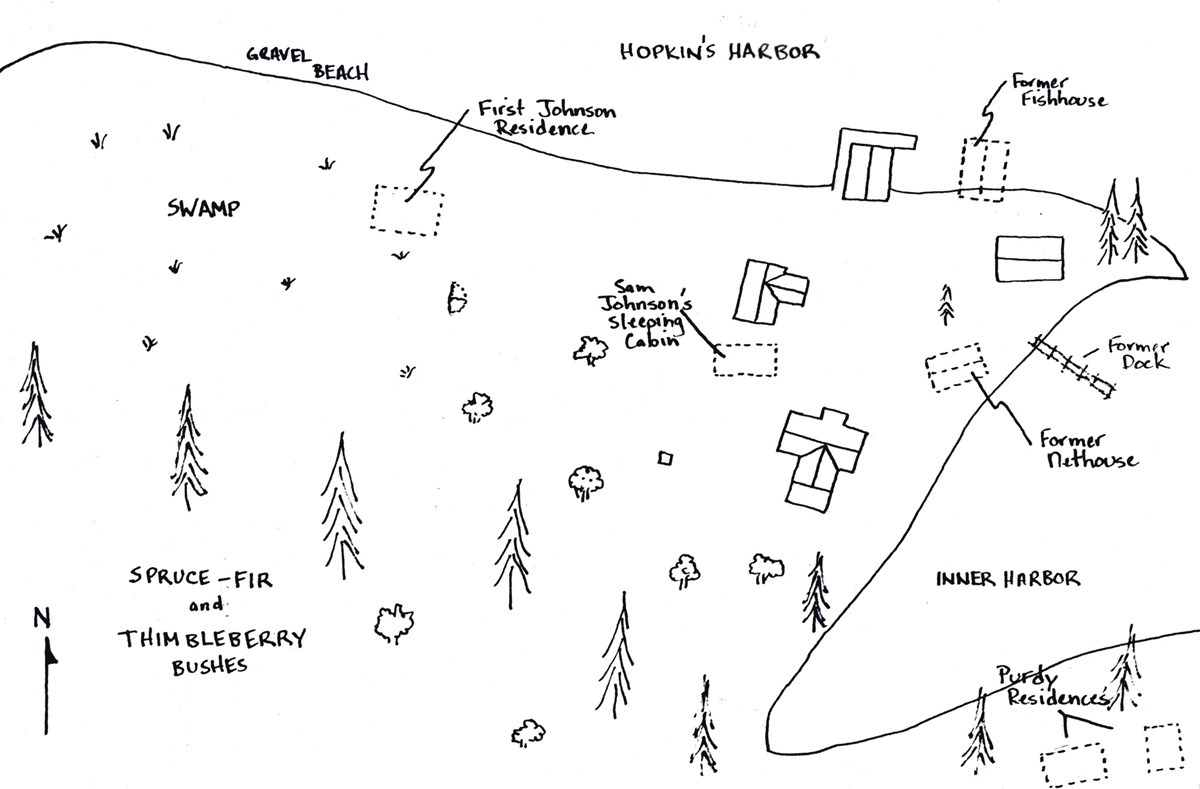 GRAVEL
BEACH
HOPKIN'S HARBOR
First Johnson
Residence
Former
Fishhouse
SWAMP
Sam
Johnson's
Sleeping
Cabin
Former
Dock
Former
Nethouse
SPRUCE-FIR
and
THIMBLEBERRY
BUSHES
N
INNER HARBOR
Purdy
Residences